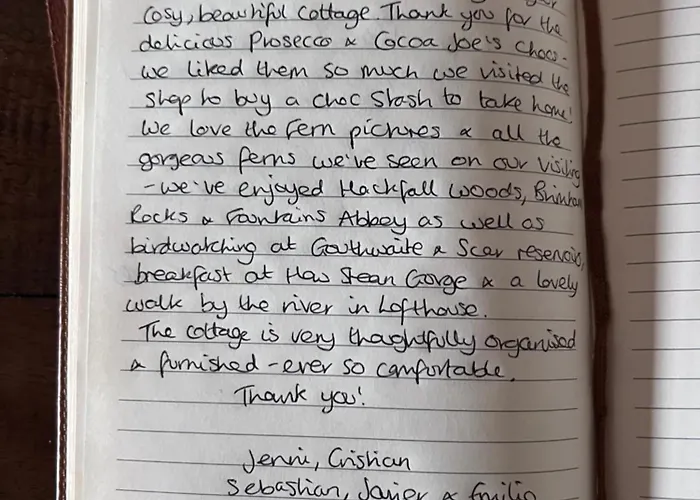 cosy, beautiful cottage. Thank you for the
delicious Prosecco & Cocoa Joe's choc -
we liked them so much we visited the
shop to buy a choc stash to take home!
We love the fern pictures & all the
gorgeous ferns we've seen on our visiting
- we've enjoyed Hackfall Woods, Brimham
Rocks & Fountains Abbey as well as
birdwatching at Gouthwaite & Scar reservoirs,
breakfast at How Stean Gorge & a lovely
walk by the river in Lofthouse.
The cottage is very thoughtfully organised
& furnished - ever so comfortable.
Thank you!
Jenni, Cristian
Sebastian, Javier & Emilio